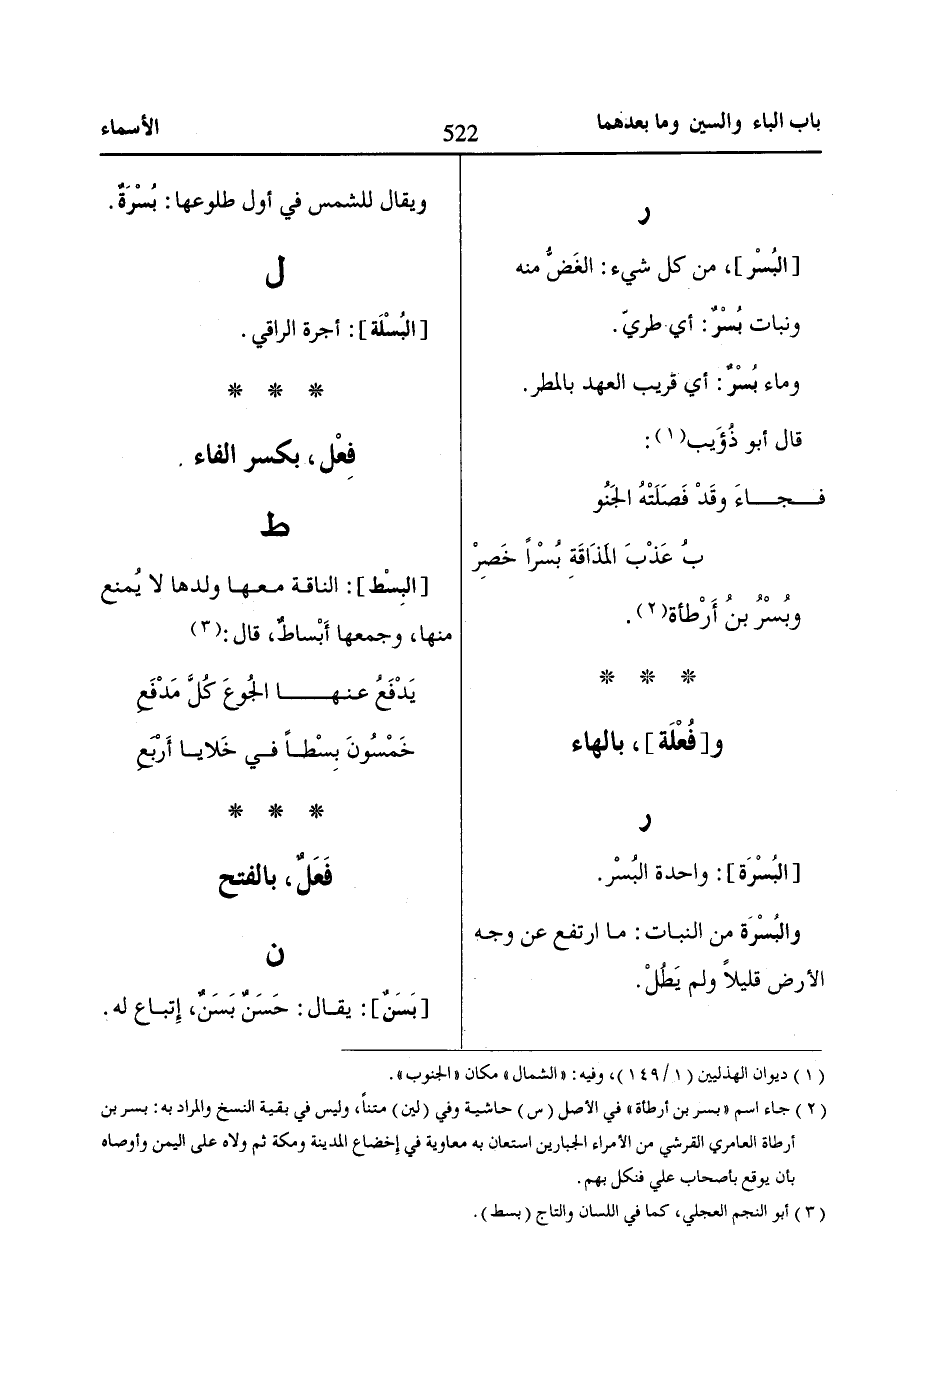 باب الباء والسين وما بعدهما
522
الأسماء
ر
[البُسْر]، من كل شيء: الغَضُّ منه
ونبات بُسْرٌ: أي طريّ.
وماء بُسْرٌ: أي قريب العهد بالمطر.
قال أبو ذُؤَيب(١):
فـــجـــاءَ وقَدْ فَصَلَتْهُ الجَنُو
بُ عَذْبَ المَذَاقَةِ بُسْراً خَصِرْ
وبُسْرُ بنُ أَرْطأة(٢).
* * *
و[فُعْلَة]، بالهاء
ر
[البُسْرَة]: واحدة البُسْر.
والبُسْرَة من النبات: ما ارتفع عن وجه
الأرض قليلاً ولم يَطُلْ.
ويقال للشمس في أول طلوعها: بُسْرَةٌ.
ل
[البُسْلَة]: أجرة الراقي.
* * *
فِعْل، بكسر الفاء
ط
[البِسْط]: الناقة معها ولدها لا يُمنع
منها، وجمعها أَبْساطٌ، قال:(٣)
يَدْفَعُ عنهــــا الجُوعَ كُلَّ مَدْفَعِ
خَمْسُونَ بِسْطاً في خَلايا أَرْبَعِ
* * *
فَعَلٌ، بالفتح
ن
[بَسَنٌ]: يقال: حَسَنٌ بَسَنٌ، إتباع له.
(١) ديوان الهذليين (١/١٤٩)، وفيه: «الشمال» مكان «الجنوب».
(٢) جاء اسم «بسر بن أرطأة» في الأصل (س) حاشية وفي (لين) متناً، وليس في بقية النسخ والمراد به: بسر بن
أرطاة العامري القرشي من الأمراء الجبارين استعان به معاوية في إخضاع المدينة ومكة ثم ولاه على اليمن وأوصاه
بأن يوقع بأصحاب علي فنكل بهم.
(٣) أبو النجم العجلي، كما في اللسان والتاج (بسط).